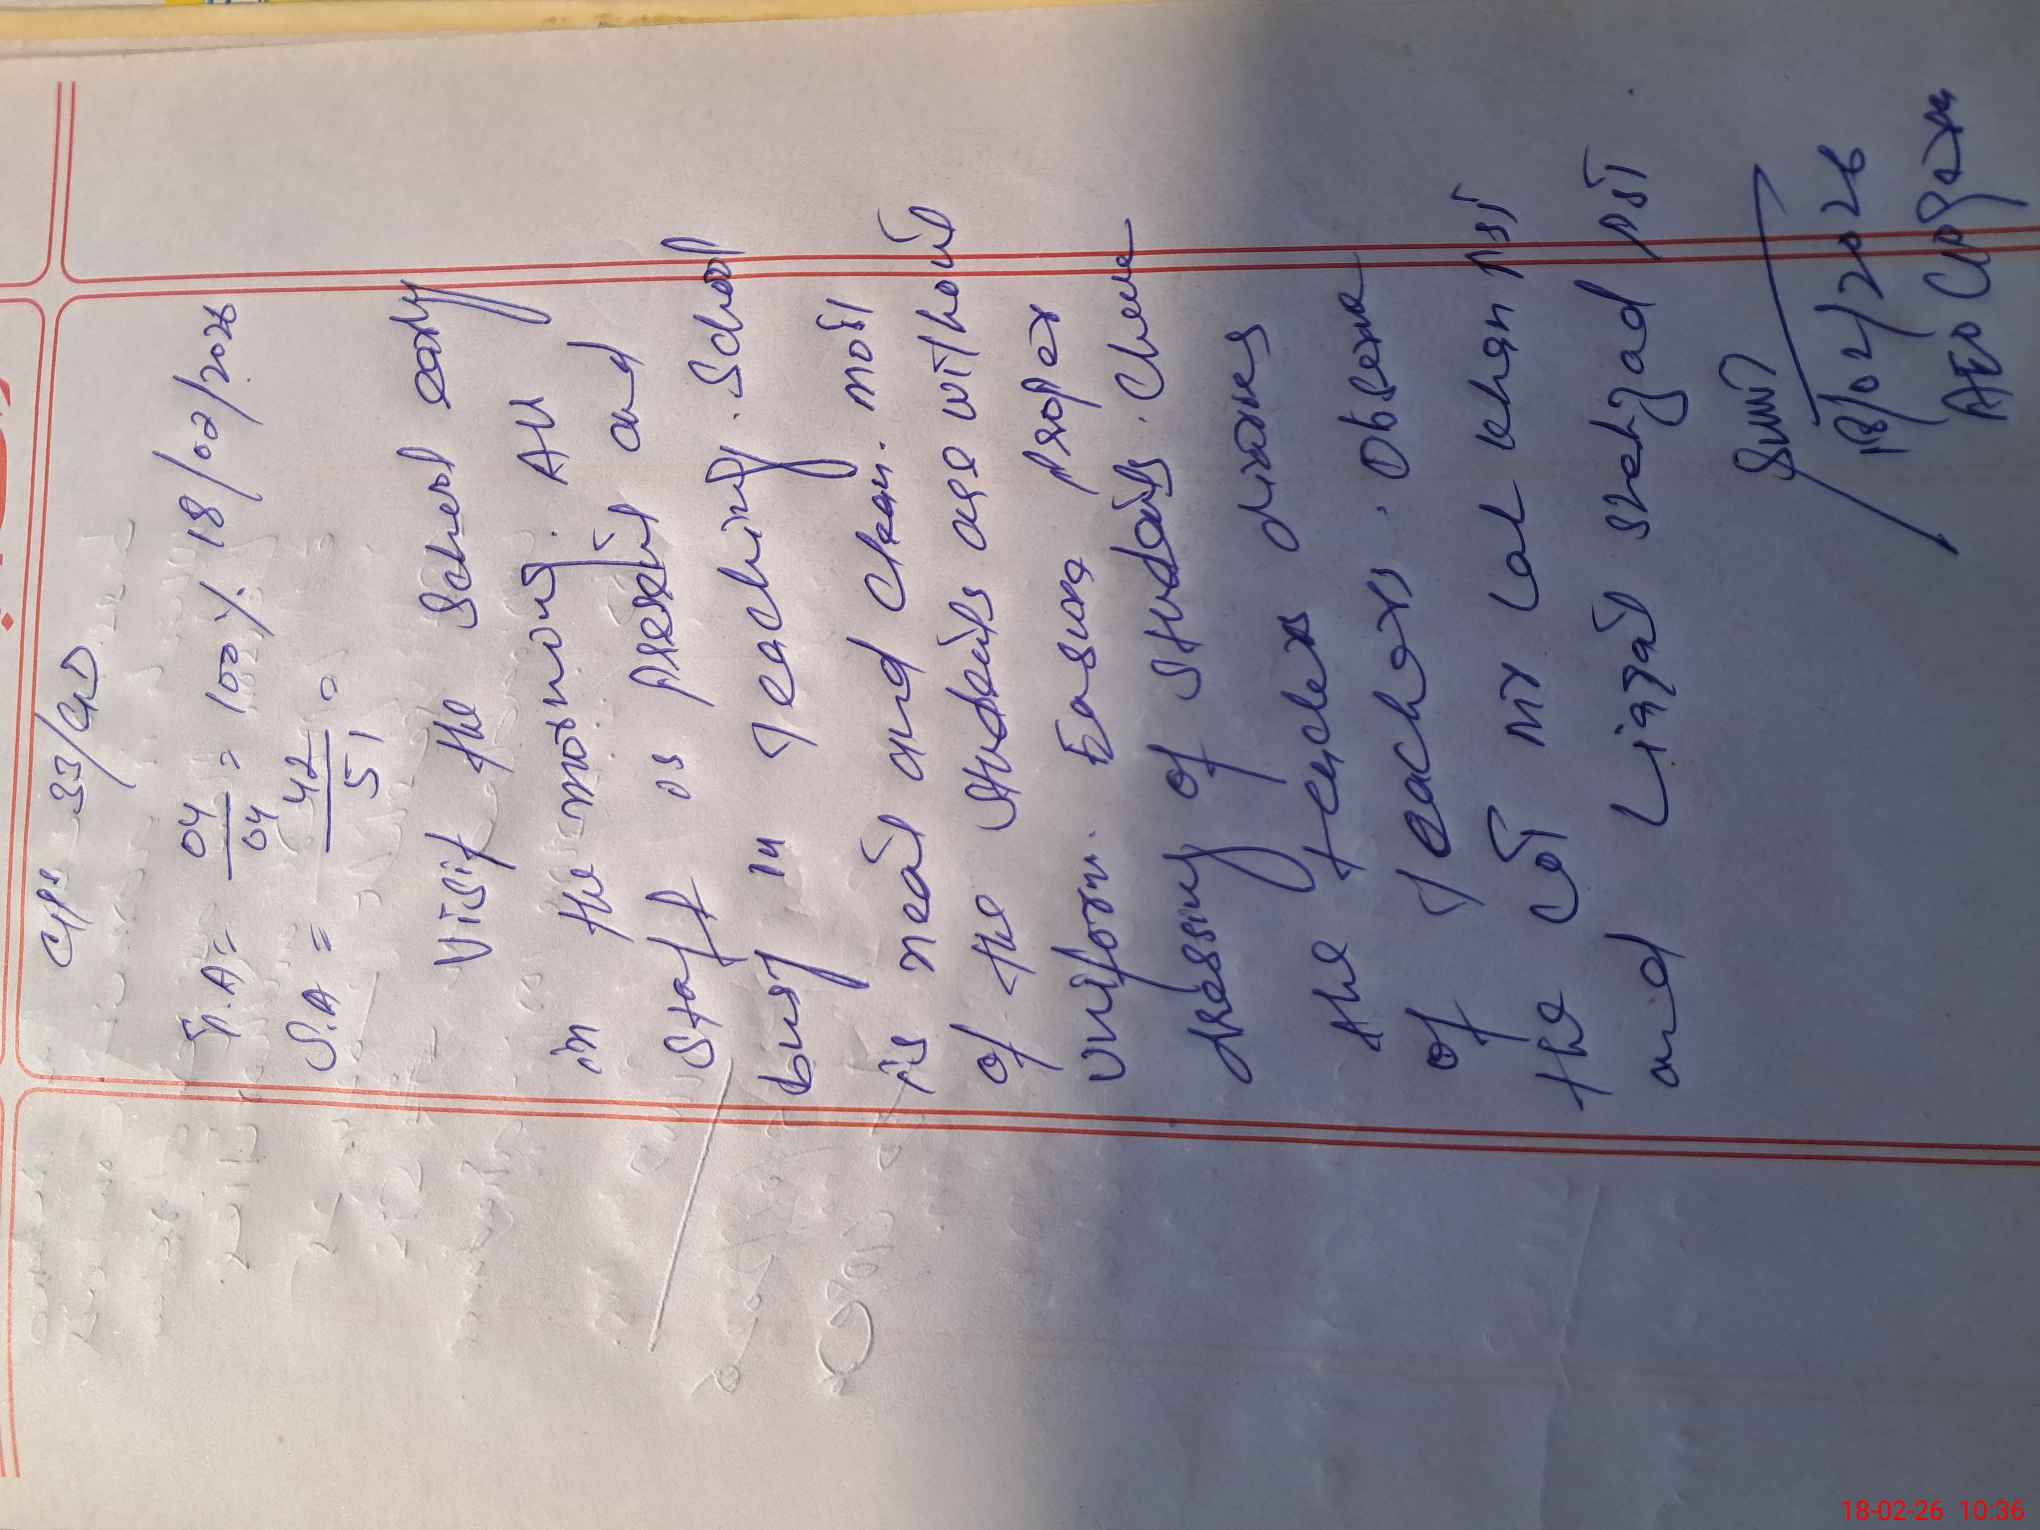 GPS 33/GD
T.A = 04/04 = 100% 18/02/2026
S.A = 42/51 =
Visit the School early
in the morning. All
staff is present and
busy in Teaching. School
is neat and clean. most
of the students are without
uniform. Ensure proper
dressing of students. Check
the teacher diaries
of Teachers. Observe
the COT Mr Lal khan PST
and Liaqat shehzad PST.
18/02/2026
AEO
18-02-26 10:36